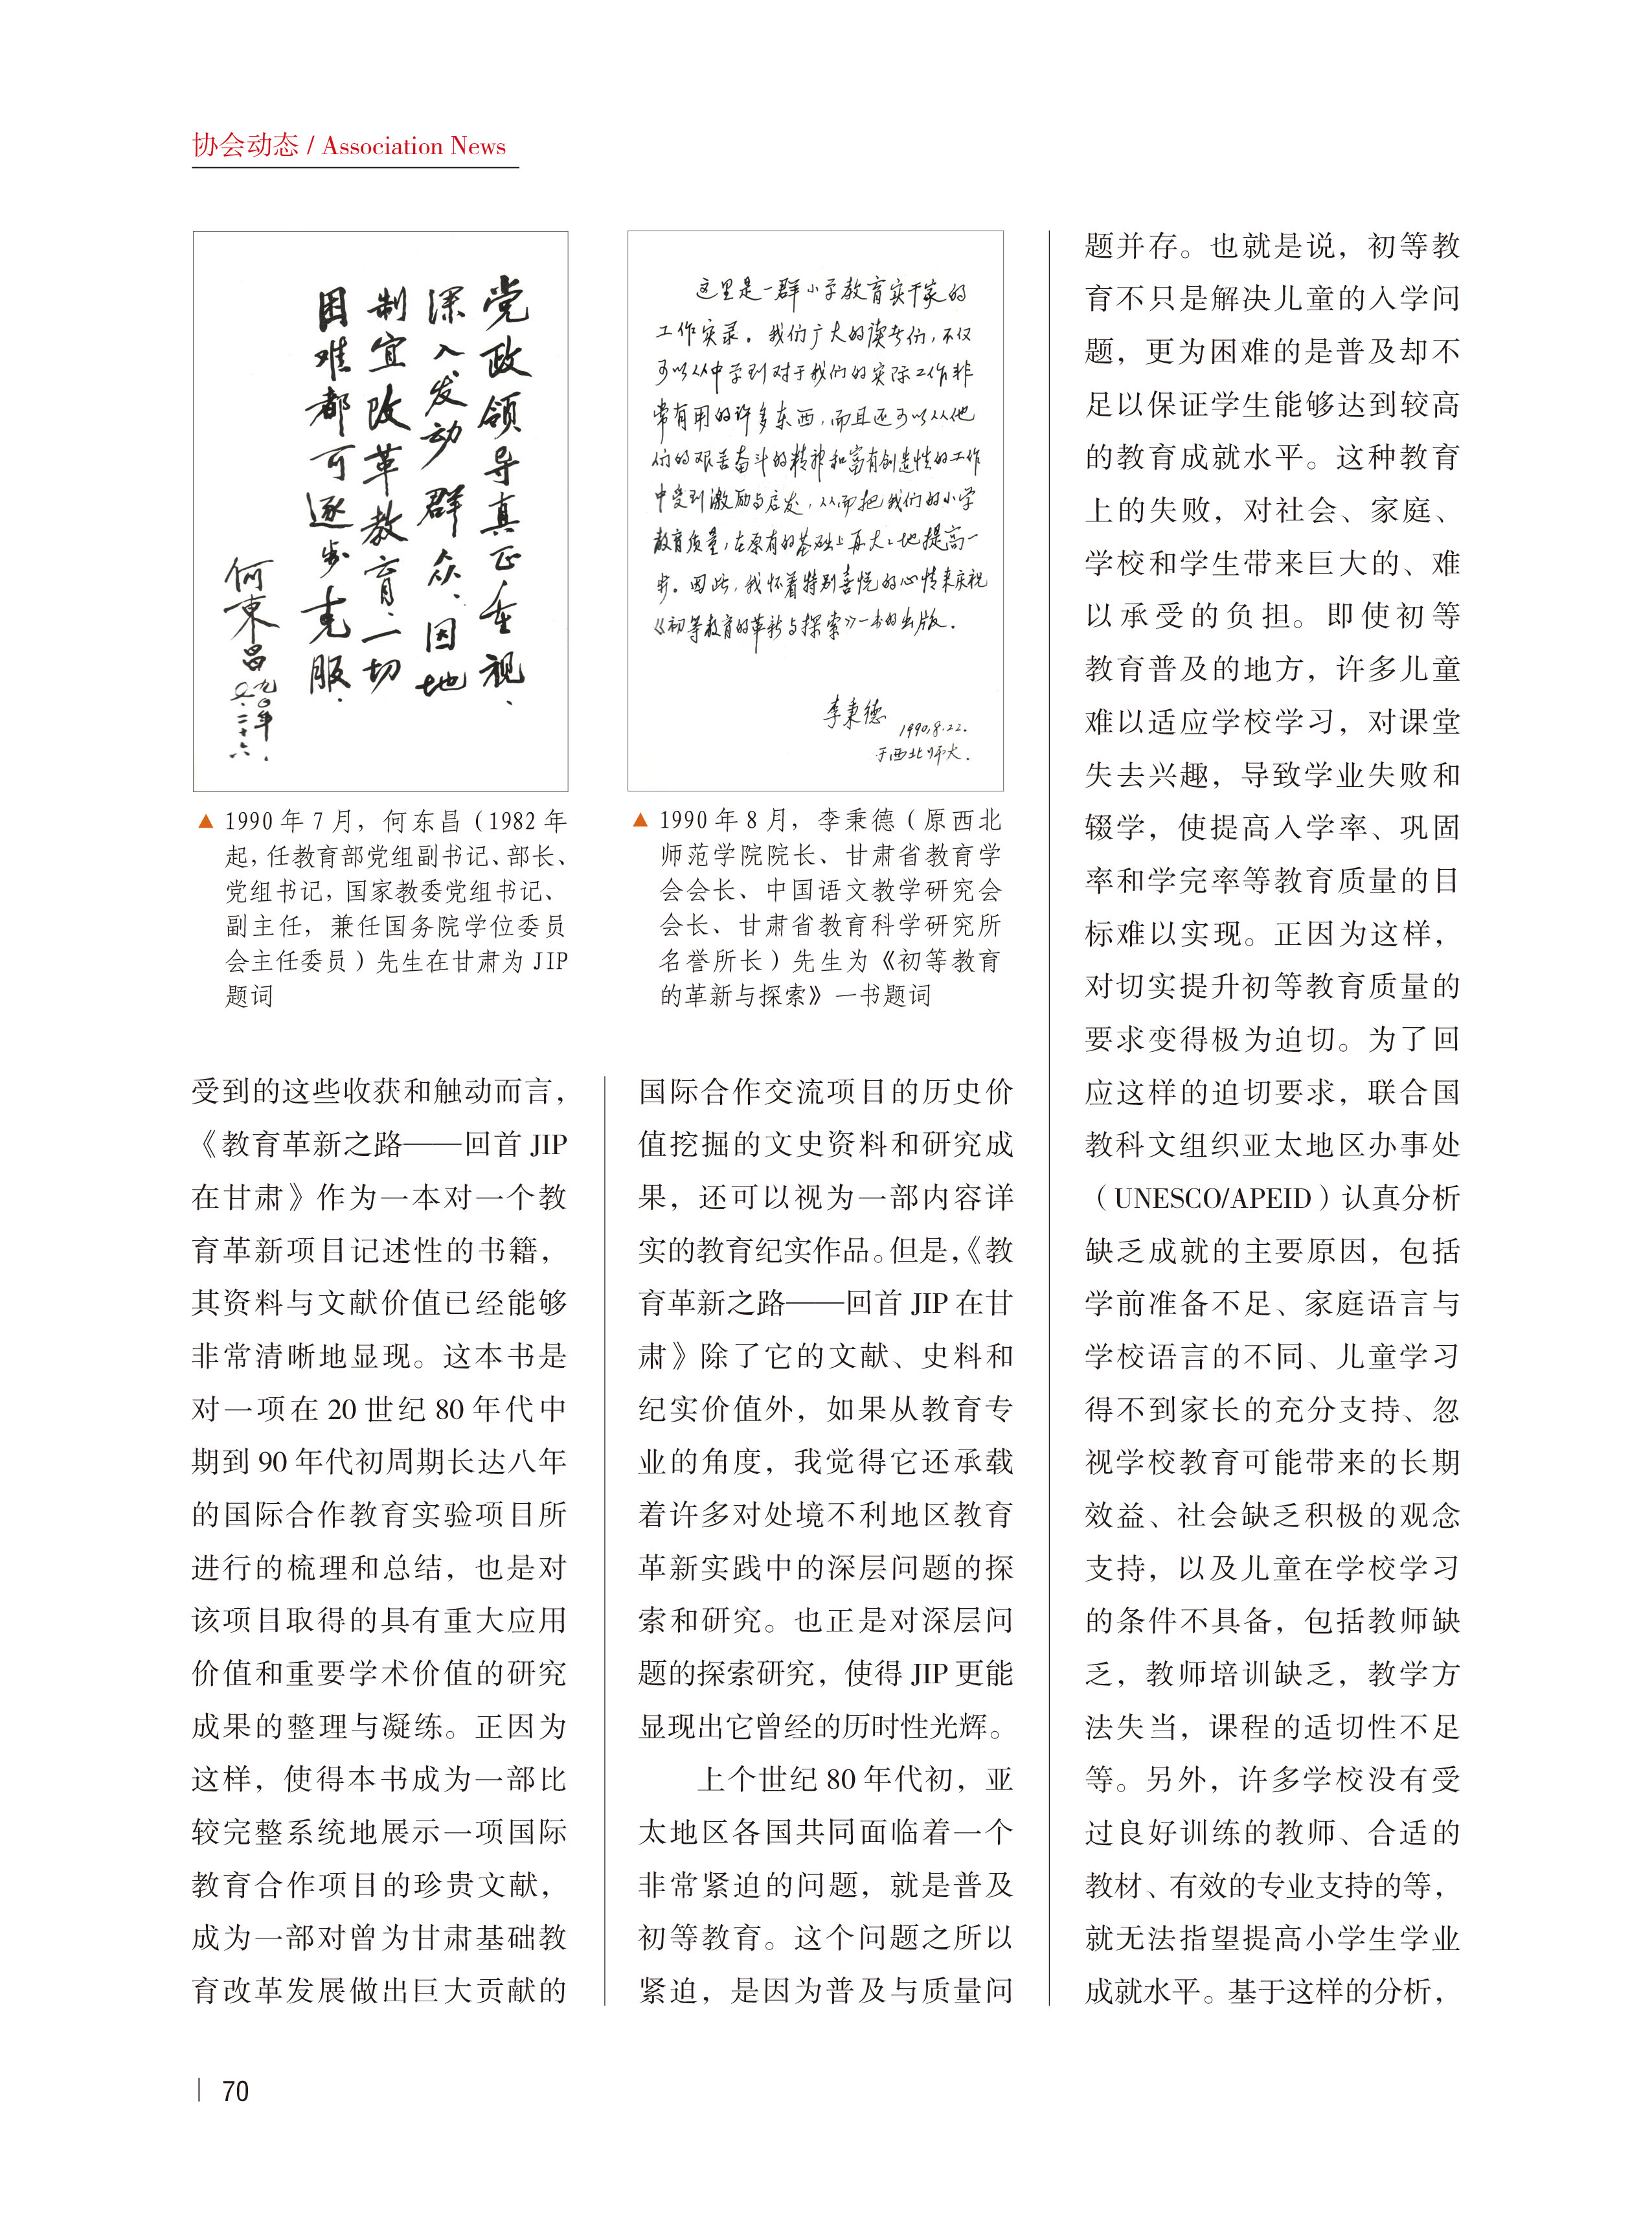 协会动态 / Association News
党政领导真正重视、
深入发动群众、因地
制宜改革教育、一切
困难都可逐步克服、
何东昌
九〇年
二十六、
这里是一群小学教育实干家的
工作实录。我们广大的读者们,不仅
可以从中学到对于我们的实际工作非
常有用的许多东西,而且还可以从他
们的艰苦奋斗的精神和富有创造性的工作
中受到激励与启发,从而把我们的小学
教育质量,在原有的基础上再大大地提高一
步。因此,我怀着特别喜悦的心情来庆祝
《初等教育的革新与探索》一书的出版。
李秉德 1990.8.22.
于西北师大.
▲ 1990 年 7 月,何东昌(1982 年
起,任教育部党组副书记、部长、
党组书记,国家教委党组书记、
副主任,兼任国务院学位委员
会主任委员)先生在甘肃为 JIP
题词
▲ 1990 年 8 月,李秉德(原西北
师范学院院长、甘肃省教育学
会会长、中国语文教学研究会
会长、甘肃省教育科学研究所
名誉所长)先生为《初等教育
的革新与探索》一书题词
受到的这些收获和触动而言,
《教育革新之路——回首 JIP
在甘肃》作为一本对一个教
育革新项目记述性的书籍,
其资料与文献价值已经能够
非常清晰地显现。这本书是
对一项在 20 世纪 80 年代中
期到 90 年代初周期长达八年
的国际合作教育实验项目所
进行的梳理和总结,也是对
该项目取得的具有重大应用
价值和重要学术价值的研究
成果的整理与凝练。正因为
这样,使得本书成为一部比
较完整系统地展示一项国际
教育合作项目的珍贵文献,
成为一部对曾为甘肃基础教
育改革发展做出巨大贡献的
国际合作交流项目的历史价
值挖掘的文史资料和研究成
果,还可以视为一部内容详
实的教育纪实作品。但是,《教
育革新之路——回首 JIP 在甘
肃》除了它的文献、史料和
纪实价值外,如果从教育专
业的角度,我觉得它还承载
着许多对处境不利地区教育
革新实践中的深层问题的探
索和研究。也正是对深层问
题的探索研究,使得 JIP 更能
显现出它曾经的历时性光辉。
上个世纪 80 年代初,亚
太地区各国共同面临着一个
非常紧迫的问题,就是普及
初等教育。这个问题之所以
紧迫,是因为普及与质量问
题并存。也就是说,初等教
育不只是解决儿童的入学问
题,更为困难的是普及却不
足以保证学生能够达到较高
的教育成就水平。这种教育
上的失败,对社会、家庭、
学校和学生带来巨大的、难
以承受的负担。即使初等
教育普及的地方,许多儿童
难以适应学校学习,对课堂
失去兴趣,导致学业失败和
辍学,使提高入学率、巩固
率和学完率等教育质量的目
标难以实现。正因为这样,
对切实提升初等教育质量的
要求变得极为迫切。为了回
应这样的迫切要求,联合国
教科文组织亚太地区办事处
(UNESCO/APEID)认真分析
缺乏成就的主要原因,包括
学前准备不足、家庭语言与
学校语言的不同、儿童学习
得不到家长的充分支持、忽
视学校教育可能带来的长期
效益、社会缺乏积极的观念
支持,以及儿童在学校学习
的条件不具备,包括教师缺
乏,教师培训缺乏,教学方
法失当,课程的适切性不足
等。另外,许多学校没有受
过良好训练的教师、合适的
教材、有效的专业支持的等,
就无法指望提高小学生学业
成就水平。基于这样的分析,
70